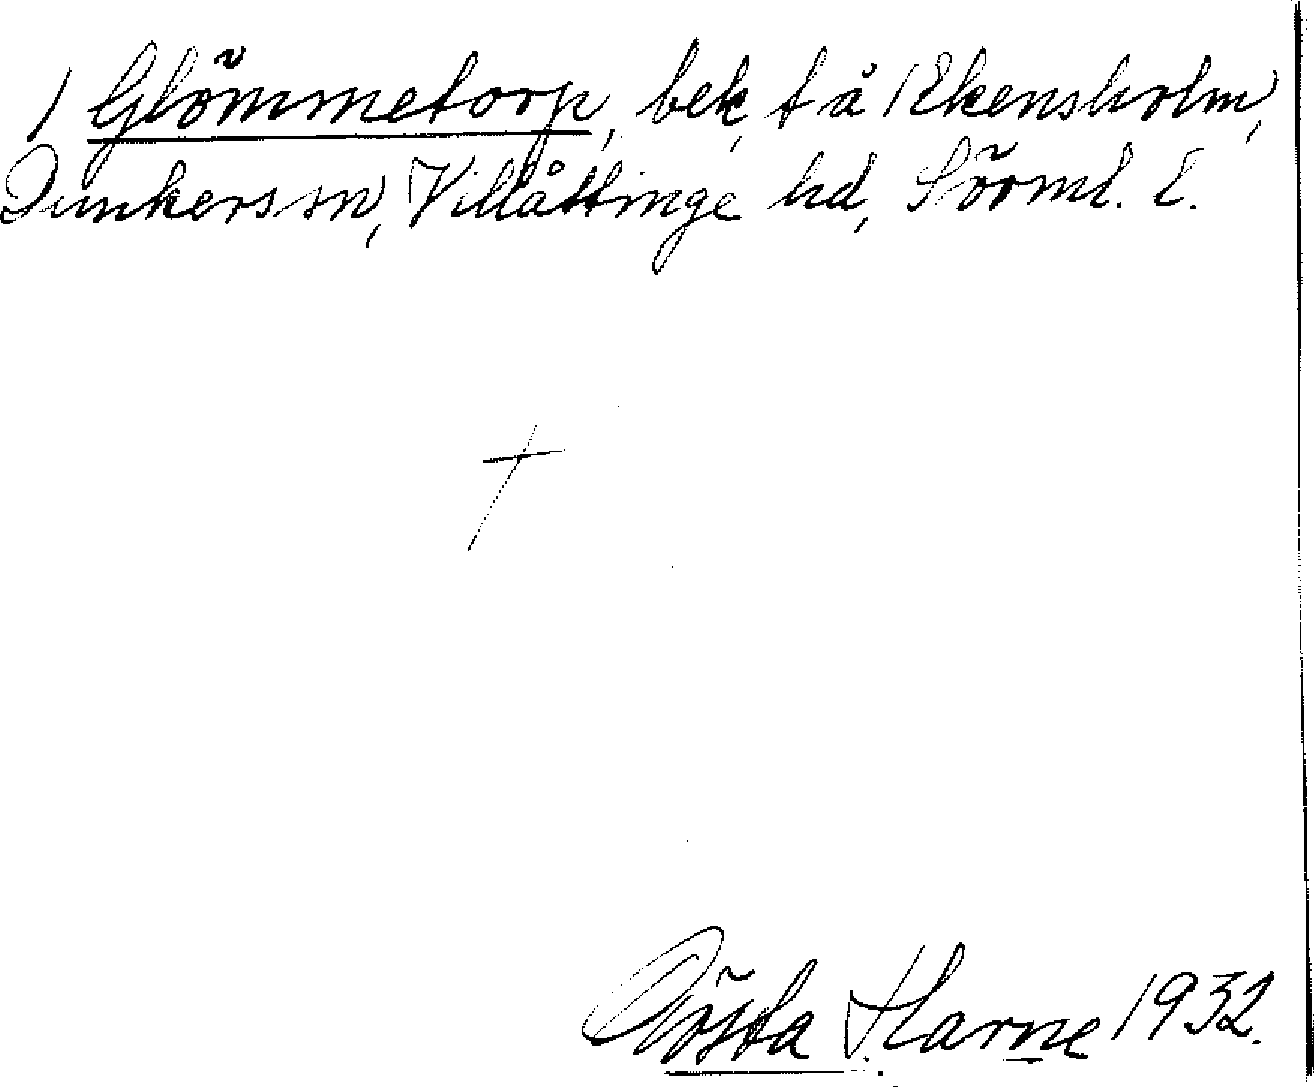 / Glömmetorp, bek, t å /Ekensholm,
Dunkers sn, Villåttinge hd, Sörml. l.
Gösta Harne 1932.